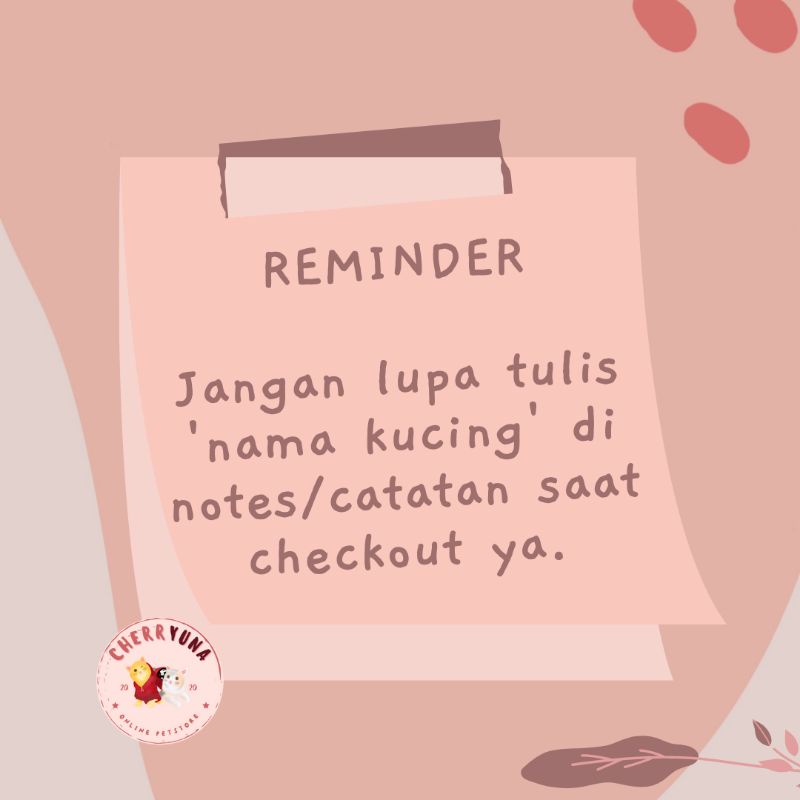 REMINDER
Jangan lupa tulis
'nama kucing' di
notes/catatan saat
checkout ya.
CHERRYUNA
20 20
ONLINE PETSTORE